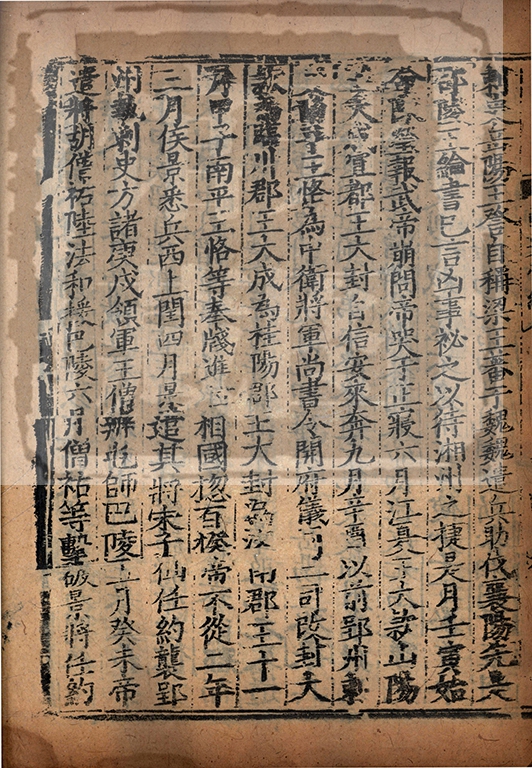 刺史岳陽王詧自稱梁王蕃于魏魏遣兵助伐襄陽先是
邵陵王綸書已言凶事祕之以待湘州之捷是月壬寅始
命陳瑩報武帝崩問帝哭于正寢六月江夏王大款山陽
王大成宜都王大封自信安來奔九月辛酉以前郢州刺
史南平王恪為中衛將軍尚書令開府儀同三司改封大
款為臨川郡王大成為桂陽郡王大封為汝南郡王十一
月甲子南平王恪等奉牋進位相國揔百揆帝不從二年
三月侯景悉兵西上閏四月景遣其將宋子仙任約襲郢
州執刺史方諸庚戌領軍王僧辯屯師巴陵五月癸未帝
遣將胡僧祐陸法和援巴陵六月僧祐等擊破景將任約